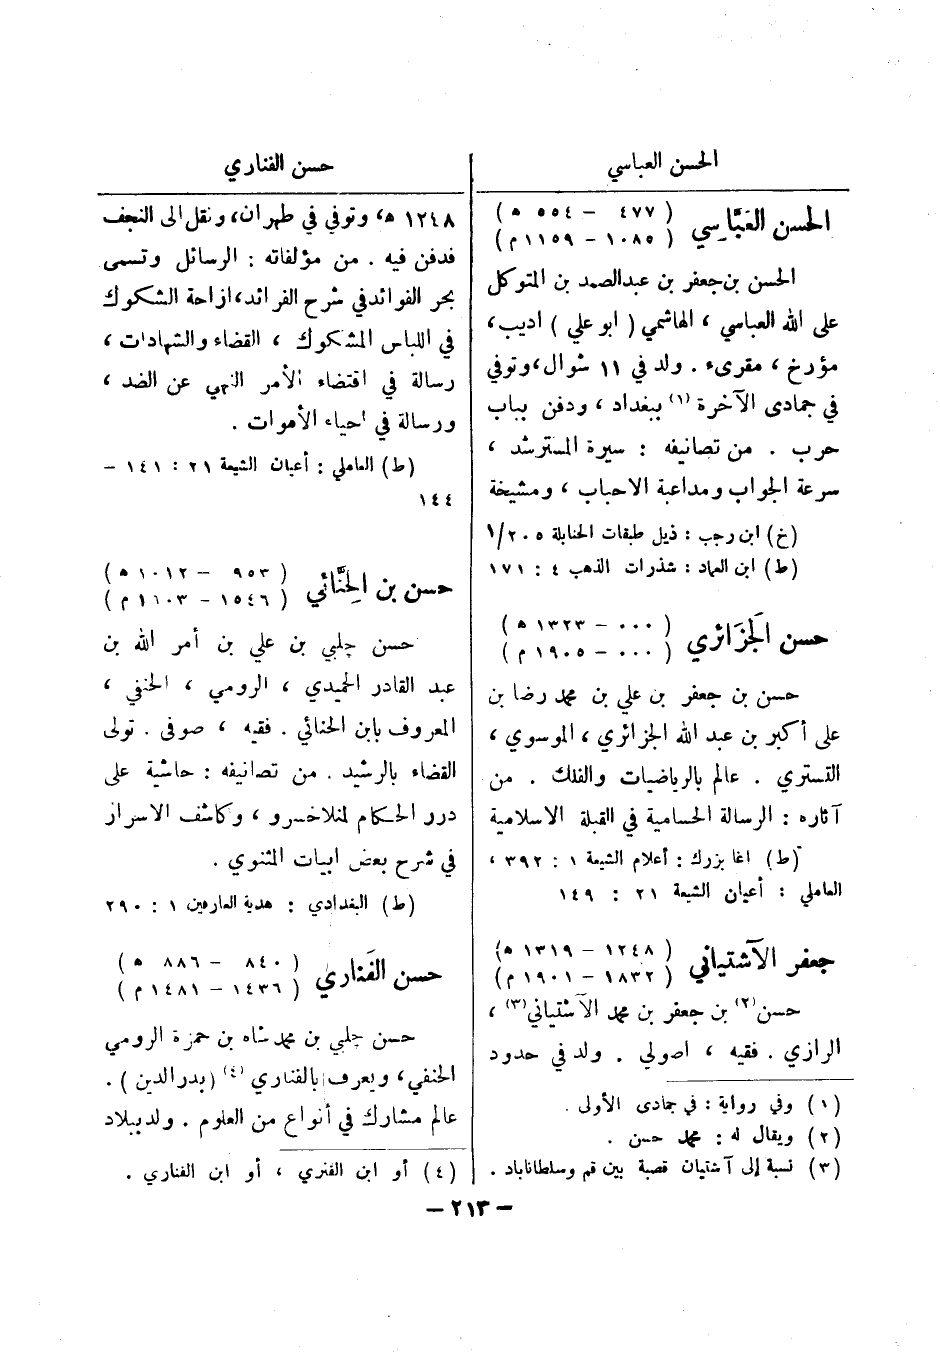 الحسن العباسي
الحسن العَبَّاسي ( ٤٧٧ – ٥٥٤ هـ )
( ١٠٨٥ – ١١٥٩ م )
الحسن بن جعفر بن عبدالصمد بن المتوكل
على الله العباسي ، الهاشمي ( ابو علي ) اديب ،
مؤرخ ، مقرىء . ولد في ١١ شوال ، وتوفي
في جمادى الآخرة (١) ببغداد ، ودفن بباب
حرب . من تصانيفه : سيرة المسترشد ،
سرعة الجواب ومداعبة الاحباب ، ومشيخة
(خ) ابن رجب : ذيل طبقات الحنابلة ٢٠٥/١
(ط) ابن العماد : شذرات الذهب ٤ : ١٧١
حسن الجَزَائري ( ٠٠٠ – ١٣٢٣ هـ )
( ٠٠٠ – ١٩٠٥ م )
حسن بن جعفر بن علي بن محمد رضا بن
علي أكبر بن عبد الله الجزائري ، الموسوي ،
التستري . عالم بالرياضيات والفلك . من
آثاره : الرسالة الحسامية في القبلة الاسلامية
(ط) اغا بزرك : أعلام الشيعة ١ : ٣٩٢ ،
العاملي : أعيان الشيعة ٢١ : ١٤٩
جعفر الآشتياني ( ١٢٤٨ – ١٣١٩ هـ )
( ١٨٣٢ – ١٩٠١ م )
حسن (٢) بن جعفر بن محمد الآشتياني (٣) ،
الرازي . فقيه ، اصولي . ولد في حدود
(١) وفي رواية : في جمادى الأولى .
(٢) ويقال له : محمد حسن .
(٣) نسبة إلى آشتيان قصبة بين قم وسلطاناباد .
حسن الفناري
١٢٤٨ هـ ، وتوفي في طهران ، ونقل الى النجف
فدفن فيه . من مؤلفاته : الرسائل وتسمى
بحر الفوائد في شرح الفرائد ، ازاحة الشكوك
في اللباس المشكوك ، القضاء والشهادات ،
رسالة في اقتضاء الأمر النهي عن الضد ،
ورسالة في احياء الأموات .
(ط) العاملي : أعيان الشيعة ٢١ : ١٤١ –
١٤٤
حسن بن الحِنَّائي ( ٩٥٣ – ١٠١٢ هـ )
( ١٥٤٦ – ١٦٠٣ م )
حسن چلبي بن علي بن أمر الله بن
عبد القادر الحميدي ، الرومي ، الحنفي ،
المعروف بابن الحنائي . فقيه ، صوفي . تولى
القضاء بالرشيد . من تصانيفه : حاشية على
درر الحكام لمنلاخسرو ، وكاشف الاسرار
في شرح بعض ابيات المثنوي .
(ط) البغدادي : هدية العارفين ١ : ٢٩٠
حسن الفَناري ( ٨٤٠ – ٨٨٦ هـ )
( ١٤٣٦ – ١٤٨١ م )
حسن چلبي بن محمد شاه بن حمزة الرومي
الحنفي ، ويعرف بالفناري (٤) (بدر الدين ) .
عالم مشارك في أنواع من العلوم . ولد ببلاد
(٤) أو ابن الفنري ، أو ابن الفناري .
– ٢١٣ –